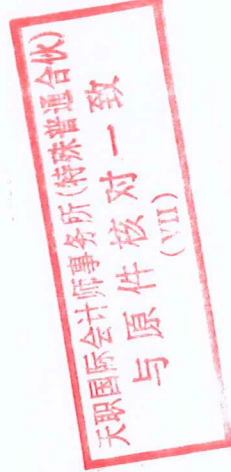 天职国际会计师事务所(特殊普通合伙)
与原件核对一致
(VII)